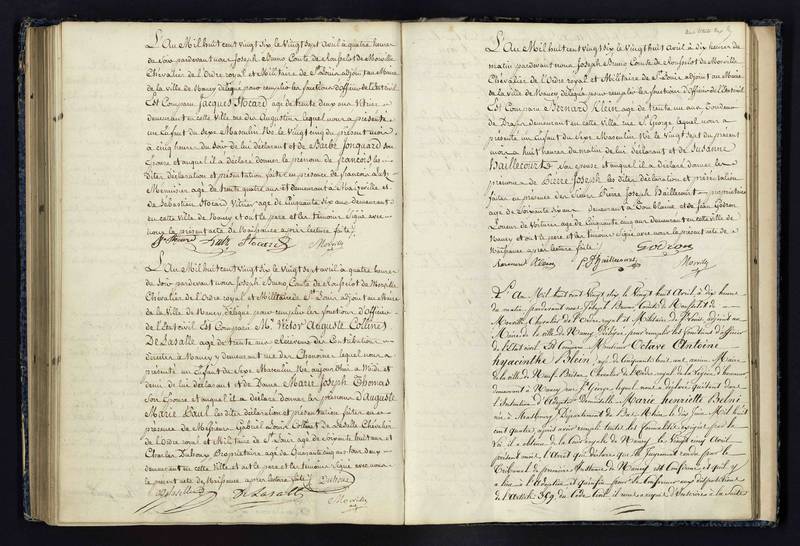 L'An Mil huit cent vingt six le Vingt sept avril à quatre heures
de soir pardevant nous Joseph Bruno Comte de Rousselot de Morville
Chevalier de l'Ordre royal et Militaire de St Louis adjoint au Maire
de la ville de Nancy délégué pour remplir les fonctions d'officier de l'Etat civil
Est Comparu Jacques Hocard agé de trente deux ans Vitrier
demeurant en cette Ville rue des Augustins lequel nous a présenté
un Enfant du Sexe Masculin Né le Vingt cinq du présent mois
à cinq heures du soir de lui déclarant et de Barbe Jonquard son
Epouse et auquel il a déclaré donner le prénom de françois les
dites déclaration et présentation faites en présence de francois
Menuisier agé de trente quatre ans et demeurant à Maizeville et
de Sébastien Hocard Vitrier agé de Cinquante six ans demeurant
en cette ville de Nancy et ont le pere et les témoins signé avec
nous le présent acte de Naissance après lecture faite
Hocard Morville
L'An Mil huit cent vingt six le Vingt sept avril à quatre heures
du soir pardevant nous Joseph Bruno Comte de Rousselot de Morville
Chevalier de l'Ordre royal et Militaire de St Louis adjoint au Maire
de la Ville de Nancy délégué pour remplir les fonctions d'officier
de l'Etat civil Est Comparu Mr Victor Auguste Collinet
De Lasalle agé de trente ans Receveur des Contributions
directes à Nancy y demeurant rue des Chanoines lequel nous a
présenté un Enfant du Sexe Masculin Né aujourd'hui à Midi et
demi de lui déclarant et de Dame Marie Joseph Thomas
son Epouse et auquel il a déclaré donner les prénoms d'Auguste
Marie Paul les dites déclaration et présentation faites en
présence de Messieurs Gabriel Louis Collinet de Lasalle Chevalier
de l'Ordre royal et Militaire de St Louis agé de soixante huit ans et
Charles Dubourg Propriétaire agé de Quarante cinq ans tous deux
demeurant en cette Ville et ont le pere et les témoins signé avec nous
le présent acte de Naissance après lecture faite
De Lasalle Morville
L'An Mil huit cent vingt six le Vingt huit Avril à dix heures du
matin pardevant nous Joseph Bruno Comte de Rousselot de Morville
Chevalier de l'Ordre royal et Militaire de St Louis adjoint au Maire
de la ville de Nancy délégué pour remplir les fonctions d'Officier de l'Etat civil
Est Comparu Bernard Klein agé de trente un ans Tondeur
de Draps demeurant en cette ville rue St George lequel nous a
présenté un Enfant du Sexe Masculin Né le Vingt sept du présent
mois à huit heures du matin de lui déclarant et de Susanne
Haillecourt son epouse et auquel il a déclaré donner les
prenoms de Pierre Joseph les dites déclaration et présentation
faites en présence des Sieurs Pierre Joseph Haillecourt propriétaire
agé de Soixante six ans demeurant à Dombasle et de Jean Godron
Loueur de Voitures agé de Cinquante cinq ans demeurant en cette ville de
Nancy et ont le pere et les témoins signé avec nous le présent acte de
Naissance après lecture faite
Godron
Bernard Klein P J Haillecourt Morville
L'An Mil huit cent Vingt six le Vingt huit Avril, à dix heures
du matin, pardevant nous Joseph Bruno Comte de Rousselot de
Morville Chevalier de l'Ordre royal et Militaire de St Louis, adjoint au
Maire de la ville de Nancy Délégué pour remplir les fonctions d'officier
de l'Etat civil Est Comparu Monsieur Octave Antoine
hyacinthe Blein agé de Cinquante huit ans, ancien Maire
de la ville de Neuf-Brisac, Chevalier de l'Ordre royal de la Légion d'honneur
demeurant à Nancy rue St George lequel nous a déclaré qu'étant dans
l'Intention d'Adopter Demoiselle Marie henriette
née à Strasbourg Département du Bas-Rhin le dix Juin Mil huit
cent quatre, après avoir rempli toutes les formalités exigées par la
loi il a obtenu de la Cour royale de Nancy le Vingt cinq Avril
présent mois l'Arrêt qui déclare que le Jugement rendu par le
Tribunal de première Instance de Nancy est confirmé et qu'il y
a lieu à l'Adoption et qu'enfin pour se conformer aux dispositions
de l'article 359 du Code Civil il nous a requis d'Inscrire à la Suite